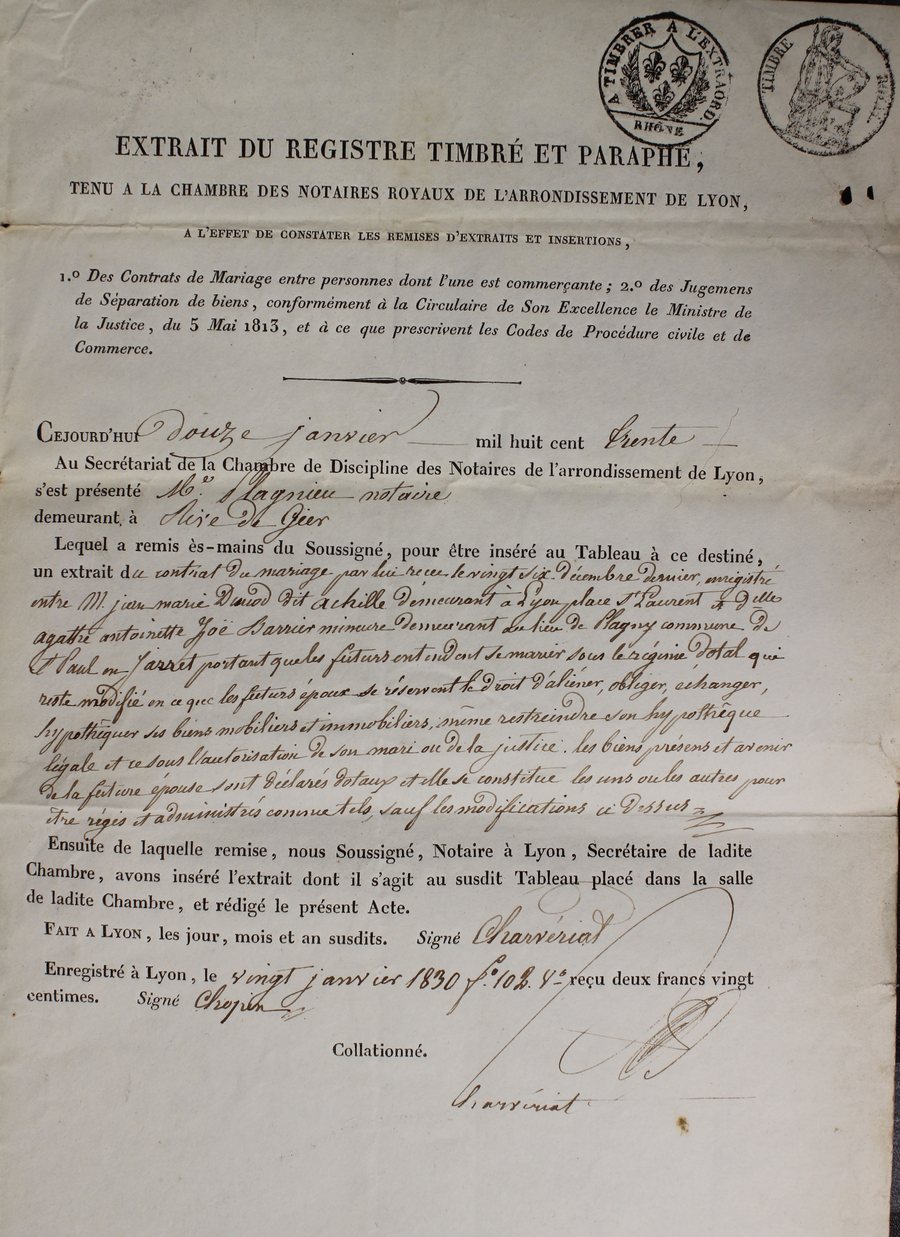 A TIMBRER A L'EXTRAORD.
RHÔNE
TIMBRE
EXTRAIT DU REGISTRE TIMBRÉ ET PARAPHÉ,
TENU A LA CHAMBRE DES NOTAIRES ROYAUX DE L'ARRONDISSEMENT DE LYON,
A L'EFFET DE CONSTATER LES REMISES D'EXTRAITS ET INSERTIONS,
1.º Des Contrats de Mariage entre personnes dont l'une est commerçante; 2.º des Jugemens
de Séparation de biens, conformément à la Circulaire de Son Excellence le Ministre de
la Justice, du 5 Mai 1813, et à ce que prescrivent les Codes de Procédure civile et de
Commerce.
CEJOURD'HUI douze janvier mil huit cent trente
Au Secrétariat de la Chambre de Discipline des Notaires de l'arrondissement de Lyon,
s'est présenté Me. Plagnieu notaire
demeurant à Rive de Gier
Lequel a remis ès-mains du Soussigné, pour être inséré au Tableau à ce destiné,
un extrait du contrat du mariage par lui recu le vingt six décembre dernier, enregistré
entre M. jean marie dit achille demeurant à Lyon place St Laurent & Dlle
agathe antoinette Zoë Barrier mineure demeurant au lieu de Plagny commune de
St Paul en Jarret portant que les futurs entendent se marier sous le régime dotal qui
reste modifié en ce que les futurs époux se réservent le droit d'aliéner, obliger, échanger,
hypothèquer ses biens mobiliers et immobiliers, même restreindre son hypothèque
légale et ce sous l'autorisation de son mari ou de la justice. les biens présens et avenir
de la future épouse sont déclarés dotaux et elle se constitue les uns ou les autres pour
être régis et administrés comme tels, sauf les modifications ci dessus
Ensuite de laquelle remise, nous Soussigné, Notaire à Lyon, Secrétaire de ladite
Chambre, avons inséré l'extrait dont il s'agit au susdit Tableau placé dans la salle
de ladite Chambre, et rédigé le présent Acte.
FAIT A LYON, les jour, mois et an susdits. Signé Charvériat
Enregistré à Lyon, le vingt janvier 1830 fo. 102. Vo reçu deux francs vingt
centimes. Signé Chopin
Collationné.
Charvériat